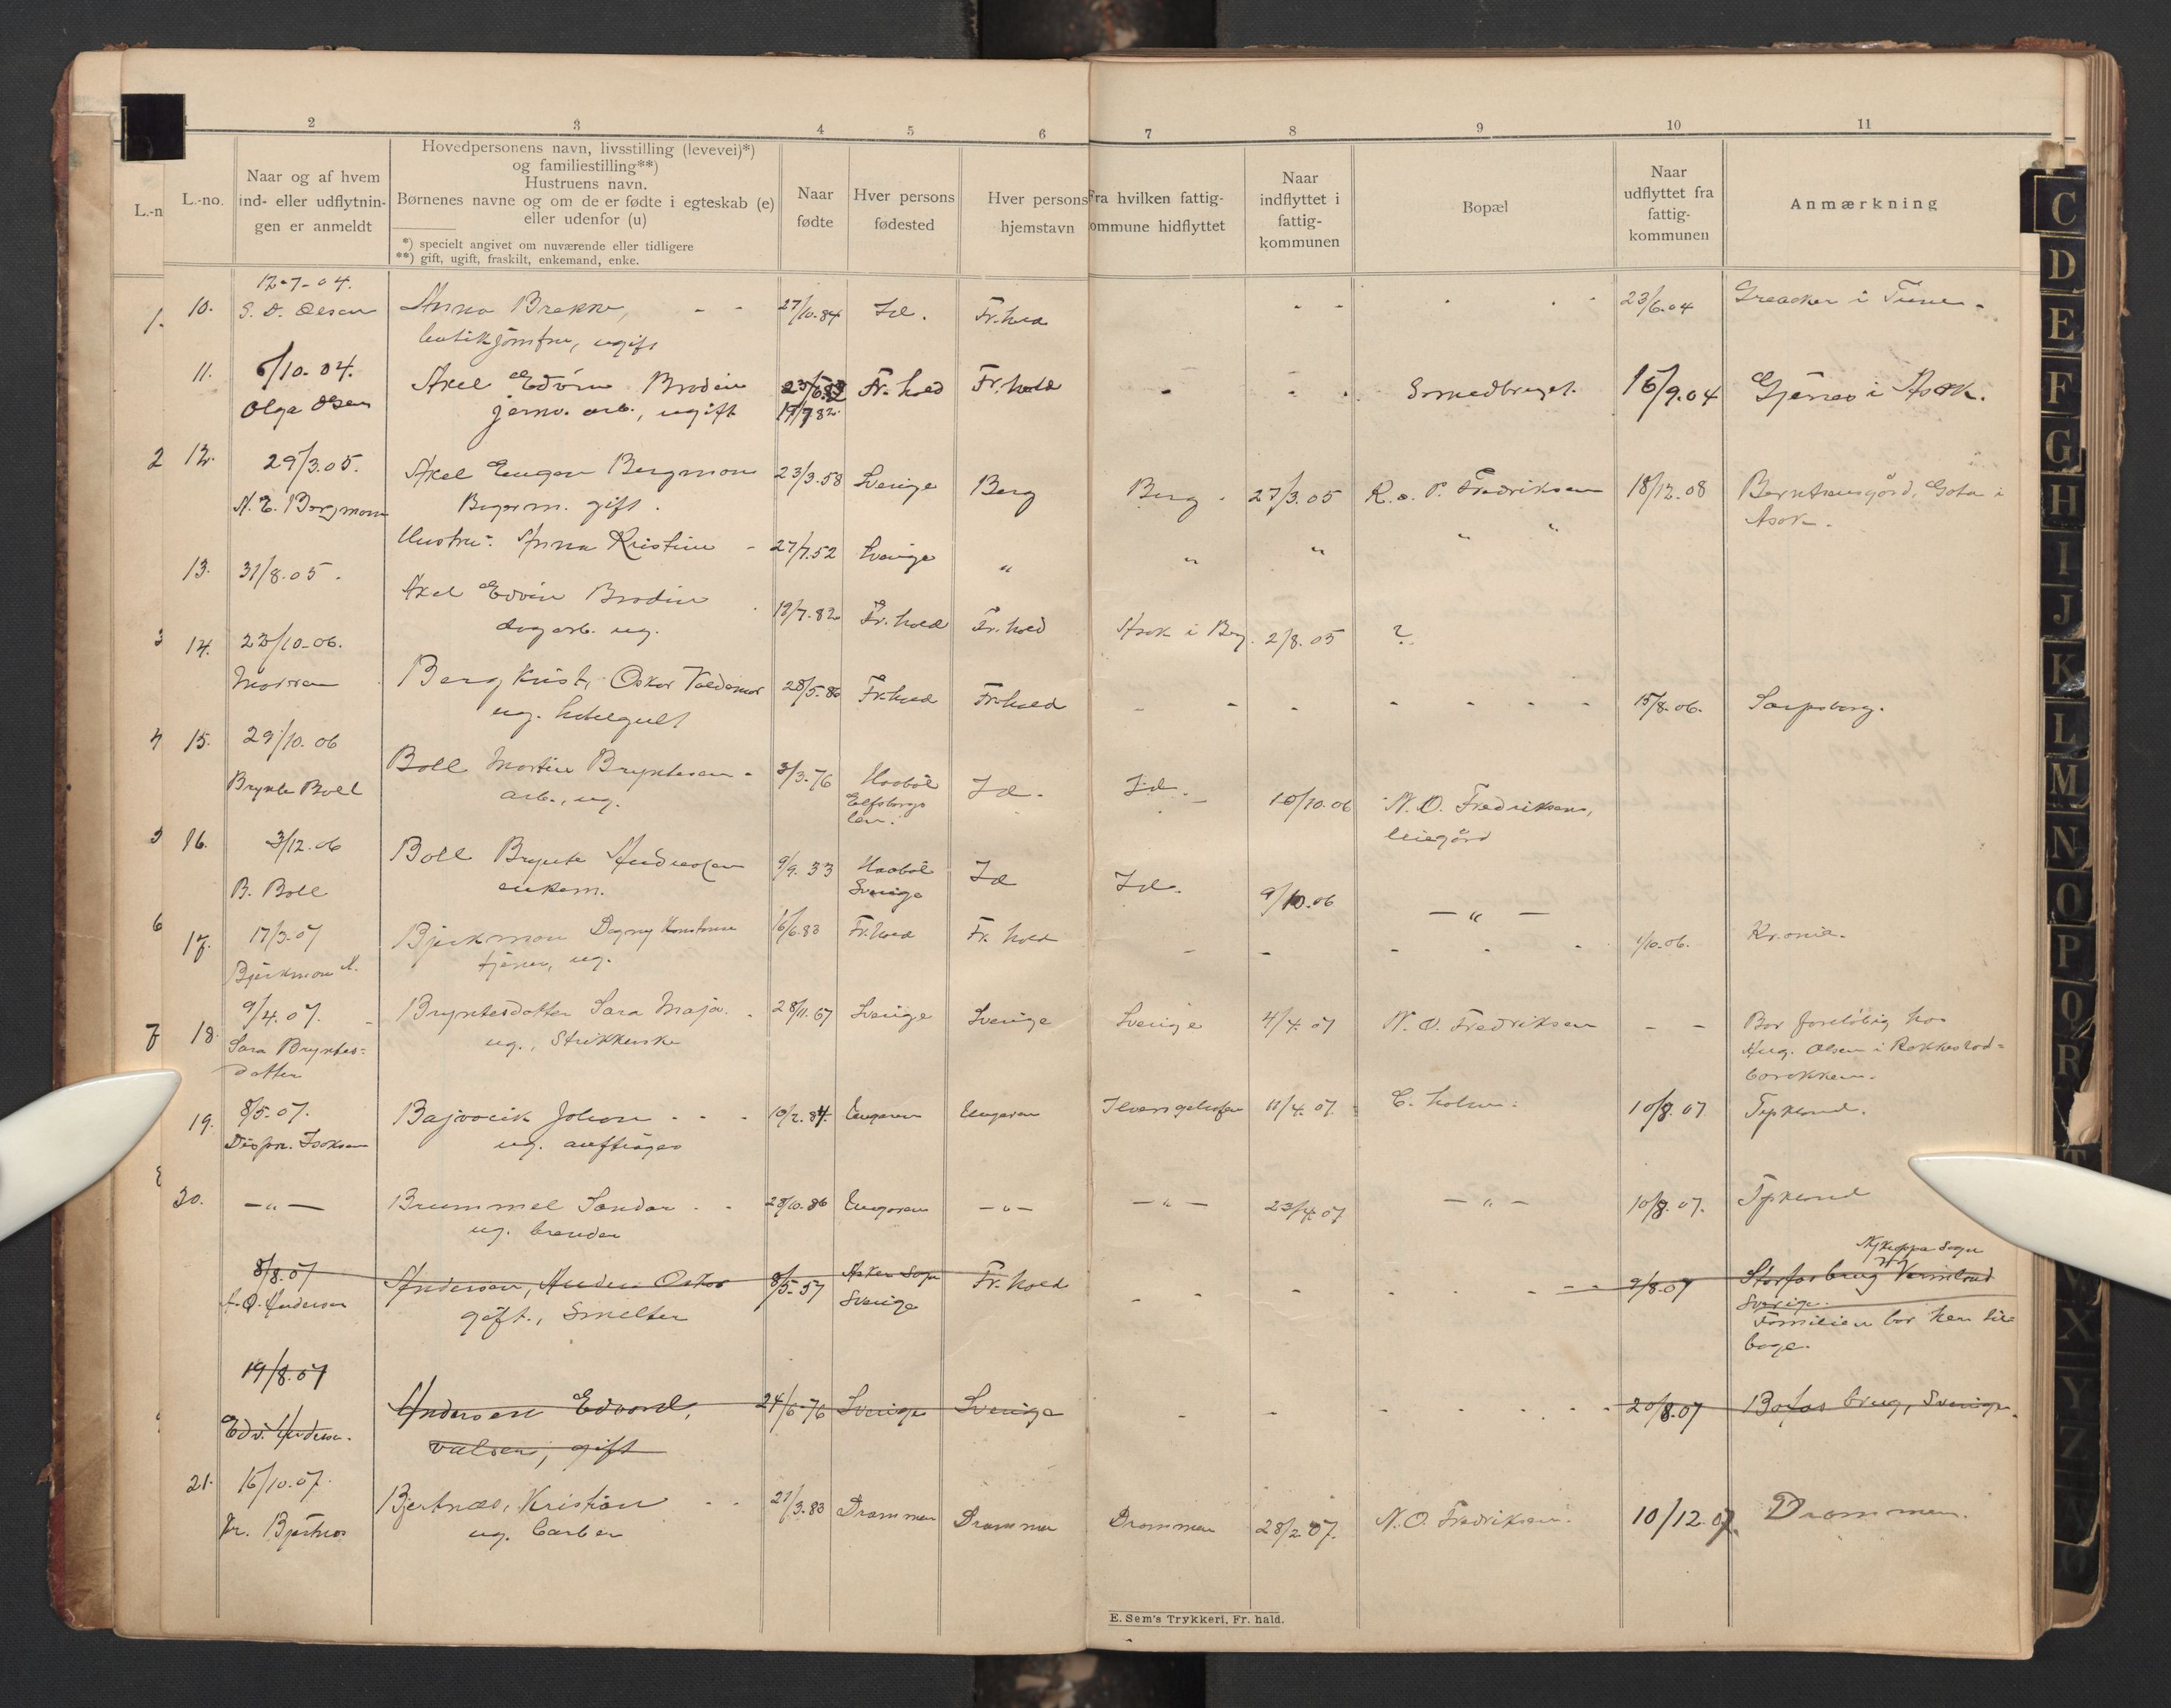 1 2 3 4 5 6 7 8 9 10 11
L.-n
L.-no.
Naar og af hvem
ind- eller udflytnin-
gen er anmeldt
Hovedpersonens navn, livsstilling (levevei)*)
og familiestilling**)
Hustruens navn.
Børnenes navne og om de er fødte i egteskab (e)
eller udenfor (u)
*) specielt angivet om nuværende eller tidligere
**) gift, ugift, fraskilt, enkemand, enke.
Naar
fødte
Hver persons
fødested
Hver persons
hjemstavn
Fra hvilken fattig-
ommune hidflyttet
Naar
indflyttet i
fattig-
kommunen
Bopæl
Naar
udflyttet fra
fattig-
kommunen
Anmærkning
12-7-04.
1. 10. Olsen Anna Brekke, - - 27/10.84 Id. Fr.hald - - 23/6.04 Greaaker i Tune -
butikjomfru, ugift
11. 6/10-04. Axel Edvin Brodin 23/6.82 Fr. hald Fr. hald - - Smedbruget. 15/9.04 i Asak.
Olga Olsen jernv. arb., ugift 19/7 82.
2 12. 29/3.05. Axel Eugen Bergman 23/3.58 Sverige Berg Berg - 27/3.05 R. o. P. Fredriksen 18/12.08 i
A. E. Bergman gift. Asak.
Hustru: Anna Kristine - 27/7.52 Sverige " " " " "
13. 31/8.05. Axel Edvin Brodin 19/7.82 Fr. hald Fr. hald Asak i Berg. 2/8.05 ?
dagarb. ug.
3 14. 23/10-06. Bergkvist, Oskar Valdemar 28/5.86 Fr.hald Fr.hald - - - - - - - 15/8.06. Sarpsborg.
ug. hotelgutt
4 15. 29/10.06 Boll Martin Bryntesen - 3/3.76 Haabøl Id. Id. - 10/10.06 N. O. Fredriksens,
Brynte Boll arb., ug. Elfsborgs leiegård
len.
5 16. 3/12.06 Boll Brynte Andreasen 9/9.33 Haabøl Id Id. 9/10.06 — " —
B. Boll enkem. Sverige
6 17. 17/3.07 Bjerkman Dagny Konstanse 16/6.83 Fr. hald Fr. hald - - - - - 1/10.06. Kr.ania.
Bjerkman A. tjener, ug.
7 18. 9/4.07. - Bryntesdatter Sara Maja. - 28/11.67 Sverige Sverige Sverige 4/4.07 N. O. Fredriksen - - Bor foreløbig hos
Sara Bryntes= ug., Strikkerske Aug. Olsen i Rokkestad=
datter barakken.
19. 8/5.07. Bajvocik Johan - - - 10/2.84. Ungarn Ungarn 11/4.07. C. Holm. 10/8.07 Tyskland.
Dispon. Isaksen ug.
8
20. — " — Brummel Sandor - - 28/10.86 Ungarn — " — — " — 23/4.07 — " — 10/8.07. Tyskland
ug. brænder
8/8.07 Andersen, Anders Oskar 8/5-57 Asker Sogn Fr. hald - - - - - - - 9/8.07 Storforsbrug Vermland
A. O. Andersen gift., Smelter Sverige Sverige.
Familien bor her til=
bage.
19/8.07
Edv. Andersen. Andersen Edvard, 24/6-76 Sverige Sverige - - - - - - - 20/8.07 Bofos brug, Sverige.
valser, gift
21. 16/10.07. Bjertnæs, Kristian - - 21/3.83 Drammen Drammen Drammen 28/2.07. N. O. Fredriksen. 10/12.07. Drammen.
Kr. Bjertnæs ug. barber
E. Sem's Trykkeri, Fr. hald.
C D E F G H I J K L M N O P Q R T V X Y Z